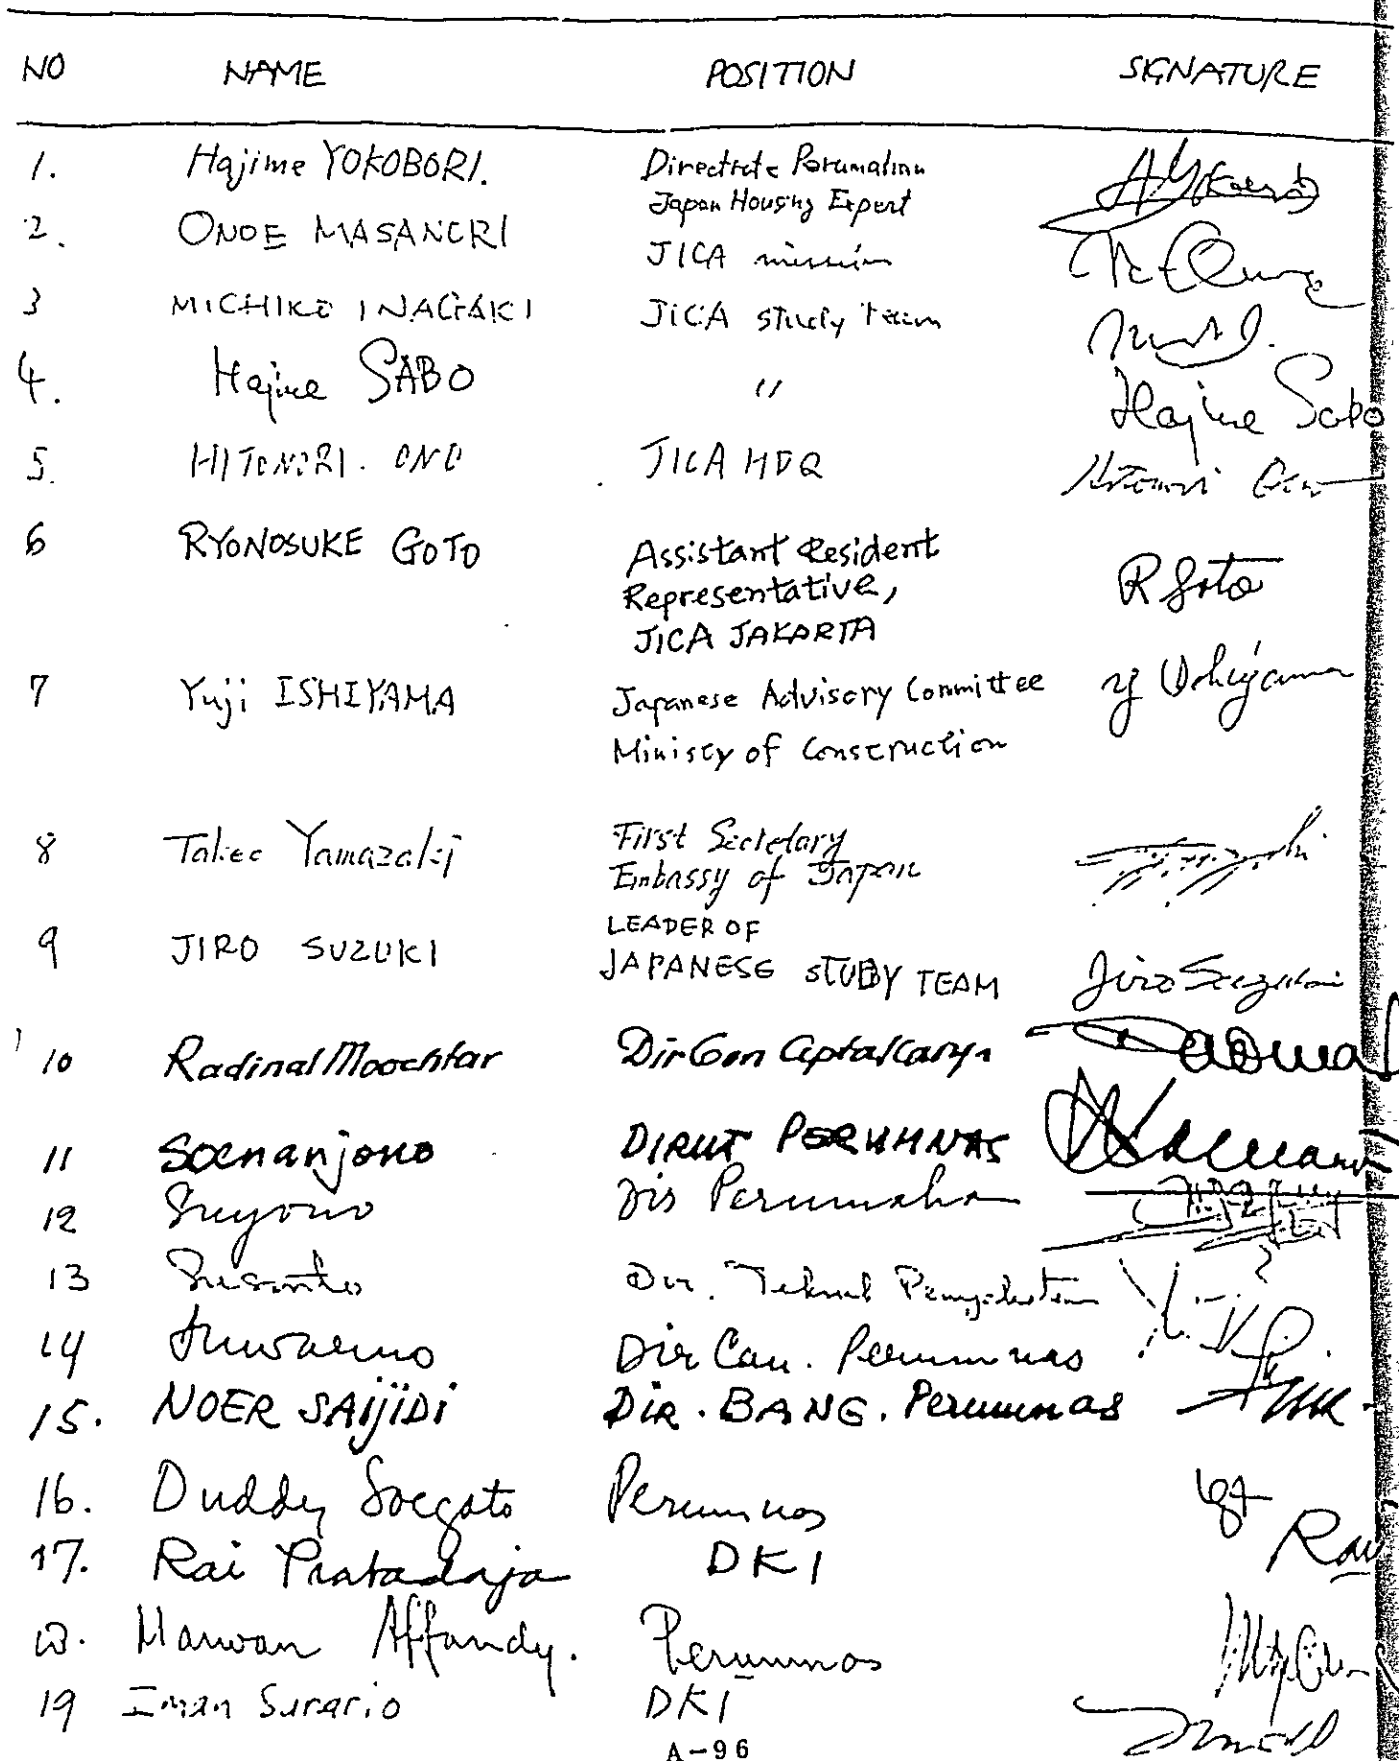 NO NAME POSITION SIGNATURE
1. Hajime YOKOBORI. Directrate Perumahan
Japan Housing Expert
2. ONOE MASANORI JICA mission
3 MICHIKO INAGAKI JICA study team
4. Hajime SABO " Hajime Sabo
5. HITONORI. ONO JICA HDQ Hitonori Ono
6 RYONOSUKE GOTO Assistant Resident R Goto
Representative,
JICA JAKARTA
7 Yuji ISHIYAMA Japanese Advisory Committee Y Ishiyama
Ministy of Construction
8 Takeo Yamazaki First Secretary
Embassy of Japan
9 JIRO SUZUKI LEADER OF
JAPANESE STUDY TEAM Jiro Suzuki
10 Radinal Moochtar DirGen Ciptakarya
11 Soenarjono DIRUT PERUMNAS
12 Suyono Dis Perumahan
13 Susanto Dir. Teknik Penyehatan
14 Suwarno Dir Can. Perumnas
15. NOER SAIJIDI DIR. BANG. Perumnas
16. Duddy Soegoto Perumnas
17. Rai Pratadaja DKI Rai
18. Marwan Affandy. Perumnas
19 Iman Surario DKI
A-96